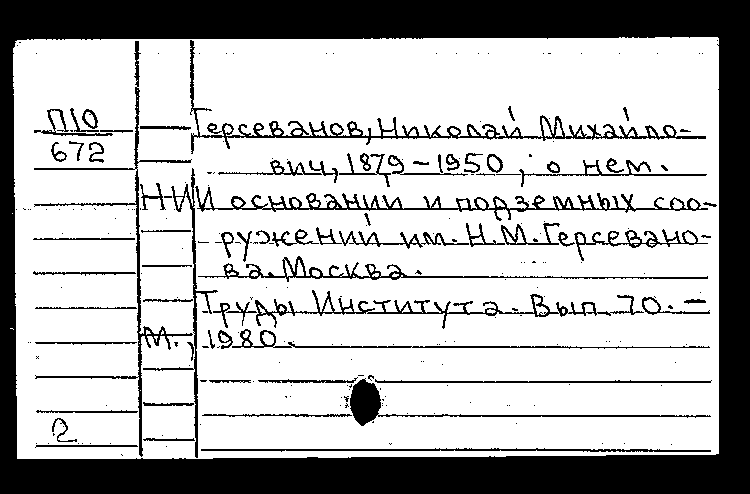 П10
672
Герсеванов, Николай Михайло-
вич, 1879-1950, о нем.
НИИ оснований и подземных соо-
ружений им. Н.М. Герсевано-
ва. Москва.
Труды Института. Вып. 70. -
М., 1980.
2